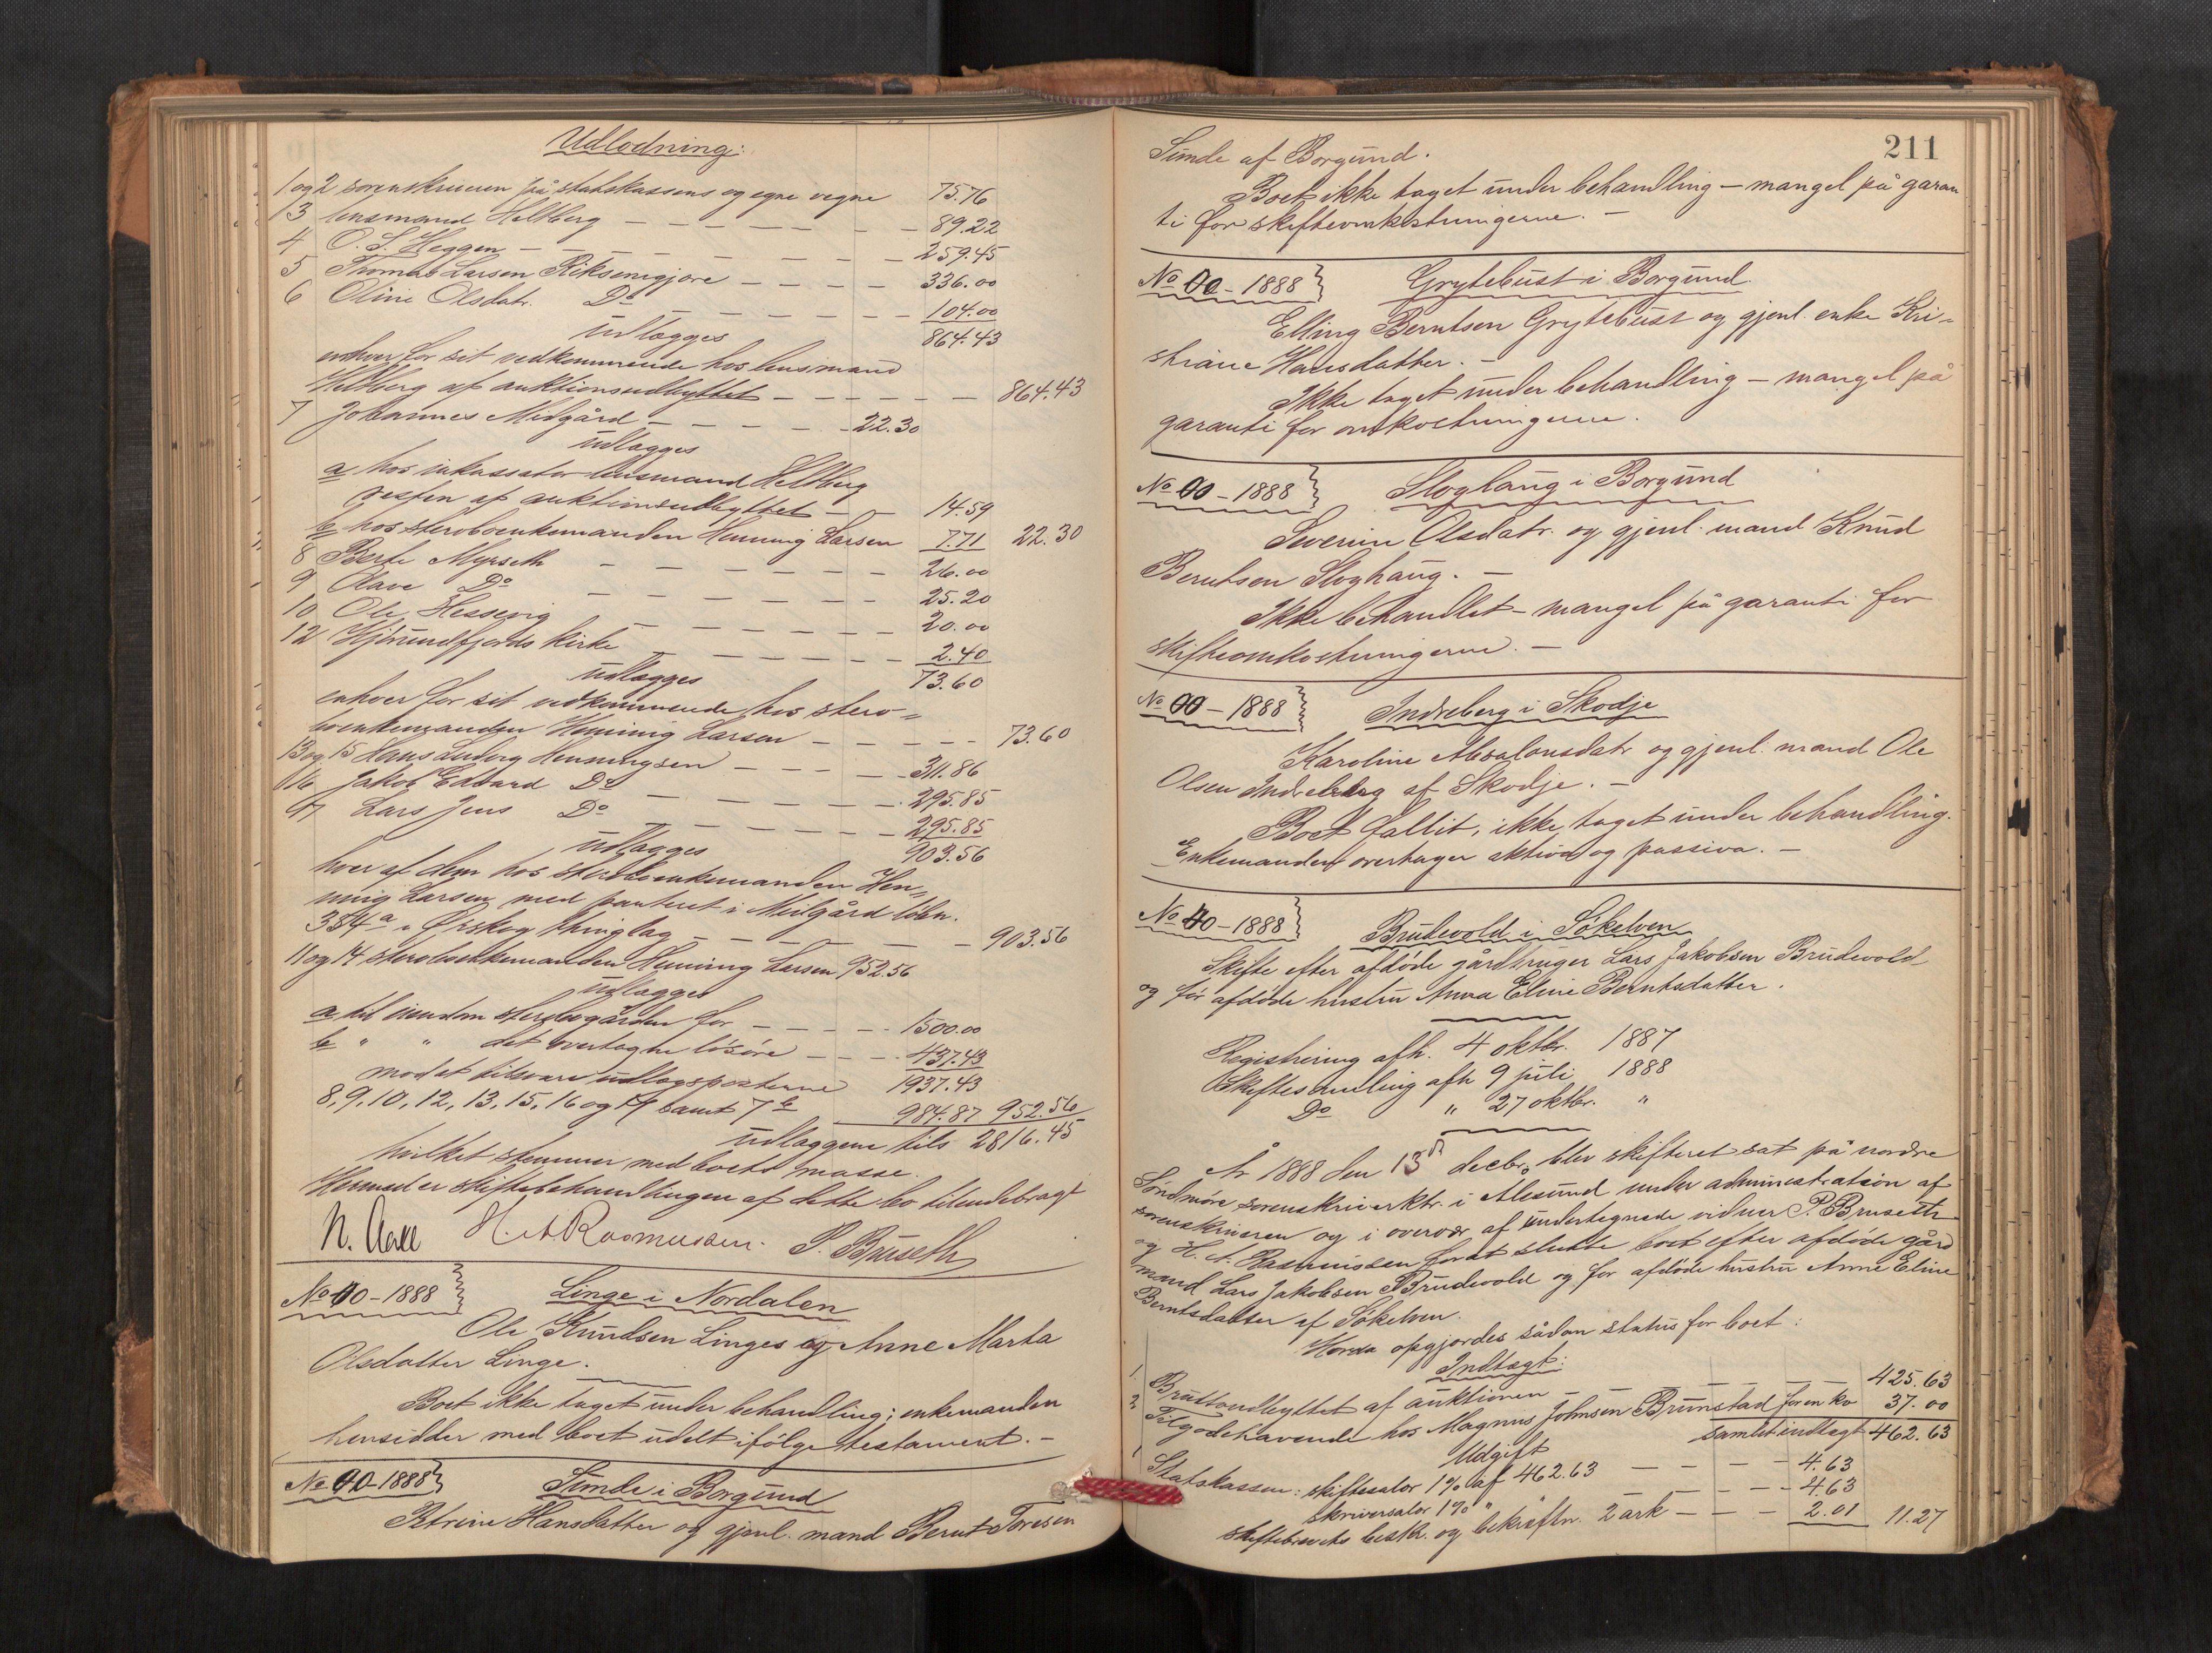 Udlodning:
1 og 2 sorenskriveren på statskassens og egne vegne 75.76
3 lensmand Hellberg 89.22
4 O. S. Heggen 259.45
5 Thomas Larsen Riksemgjøre 336.00
6 Oline Olsdatr. Do 104.00
udlægges 864.43
enhver for sit vedkommende hos lensmand
Hellberg af auktionsudbyttet 864.43
7 Johannes Midgård 22.30
udlægges
a hos inkassator lensmand Hellberg
resten af auktionsudbyttet 14.59
b hos sterboenkemanden Henning Larsen 7.71 22.30
8 Berte Myrseth 26.00
9 Olave Do 25.20
10 Ole Hessevig 20.00
12 Hjørundfjords kirke 2.40
udlægges 73.60
enhver for sit vedkommende hos sterbo-
enkemanden Henning Larsen 73.60
13 og 15 Hans Ludvig Henningsen 311.86
16 Jakob Edvard Do 295.85
17 Lars Jens Do 295.85
udlægges 903.56
hver af dem hos sterboenkemanden Hen-
ning Larsen med panteret i Midgård löbn.
384a i Ørskog thinglag 903.56
11 og 14 sterboenkemanden Henning Larsen 952.56
udlægges
a til eiendom sterbogården for 1500.00
b " " det overtagne lösöre 437.43
mod at tilsvare udlægsposterne 1937.43
8, 9, 10, 12, 13, 15, 16 og 17 samt 7b 984.87 952.56
udlæggene tils 2816.45
hvilket stemmer med boets masse.
Hermed er skiftebehandlingen af dette bo tilendebragt
N. Aall H. A. Rasmussen. P. Bruseth
No 00-1888 Linge i Nordalen
Ole Knudsen Linges og Anne Marta
Olsdatter Linge.
Boet ikke taget under behandling; enkemanden
hensidder med boet udelt ifölge testament.-
No 00-1888 Sunde i Borgund
Petrine Hansdatter og gjenl. mand Bernt Toresen
211
Sunde af Borgund.
Boet ikke taget under behandling - mangel på garan
ti for skifteomkostningerne. -
No 00-1888 Grytebust i Borgund.
Elling Berntsen Grytebust og gjenl. enke Kri-
stiane Hansdatter. -
Ikke taget under behandling - mangel på
garanti for omkostningerne.
No 00-1888 Sloghaug i Borgund
Severine Olsdatr. og gjenl. mand Knud
Berntsen Sloghaug. -
Ikke behandlet - mangel på garanti for
skifteomkostningerne. -
No 00-1888 Indreberg i Skodje
Karoline Absalonsdatr og gjenl. mand Ole
Olsen Indreberg af Skodje. -
Boet fallit, ikke taget under behandling.
Enkemanden overtager aktiva og passiva. -
No 00-1888 Brudevold i Sökelven
Skifte efter afdöde gårdbruger Lars Jakobsen Brudevold
og för afdöde hustru Anna Eline Berntsdatter.
Registrering afh. 4 oktbr. 1887
Skiftesamling afh 9 juli 1888
Do " 27 oktbr. "
År 1888 den 13d decbr. blev skifteret sat på nordre
Söndmöre sorenskriverktr. i Alesund under administration af
sorenskriveren og i overvær af undertegnede vidner P. Bruseth
og H. A. Rasmussen for at slutte boet efter afdöde gård
mand Lars Jakobsen Brudevold og för afdöde hustru Anne Eline
Berntsdatter af Sökelven.
Herda opgjordes sådan status for boet:
Indtægt:
1. Bruttoudbyttet af auktionen 425.63
2 Tilgodehavende hos Magnus Johnsen Brunstad for en ko 37.00
samlet indtægt 462.63
Udgift
1 Statskassen: skiftesalær 1% af 462.63 4.63
skriversalær 1% " 4.63
skiftebrevets beskr. og bekræftn. 2 ark 2.01 11.27